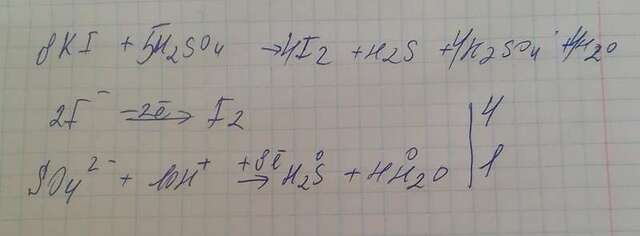 8KI + 5H₂SO₄ → 4I₂ + H₂S + 4K₂SO₄ + 4H₂O
2I⁻ −2ē→ I₂ | 4
SO₄²⁻ + 10H⁺ +8ē→ H₂S⁰ + 4H₂O⁰ | 1